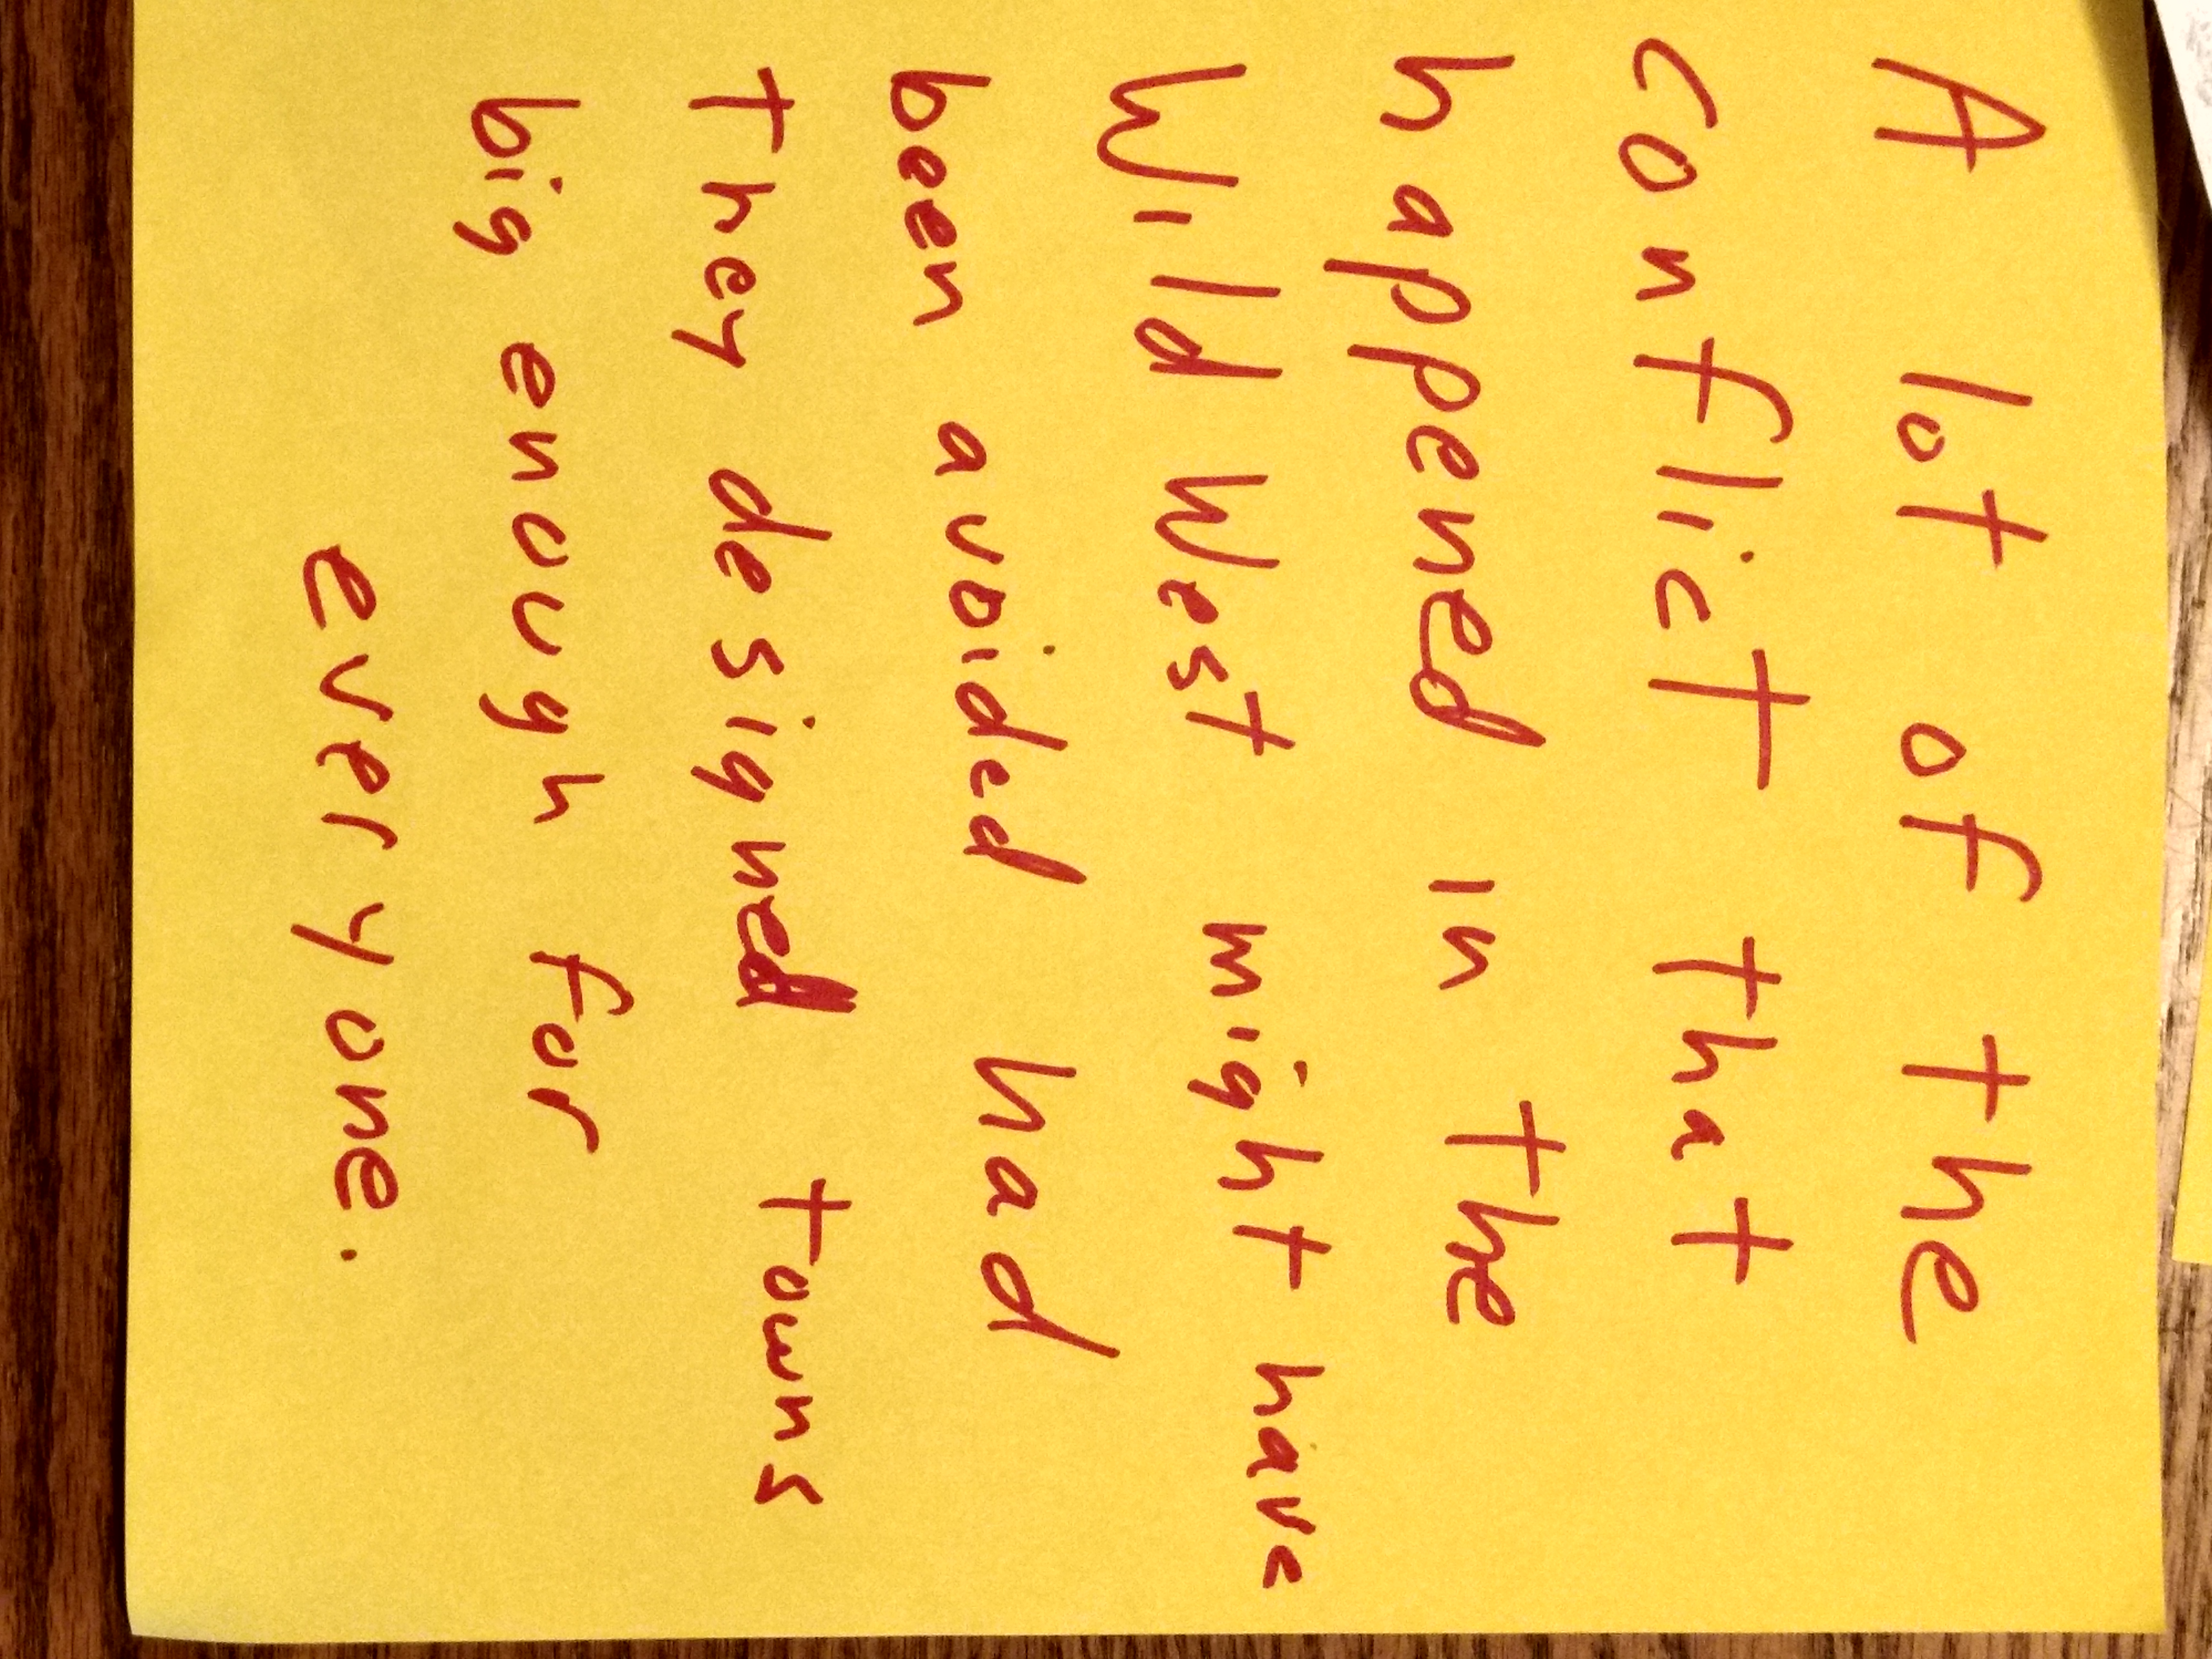 A lot of the
conflict that
happened in the
Wild West might have
been avoided had
they designed towns
big enough for
everyone.